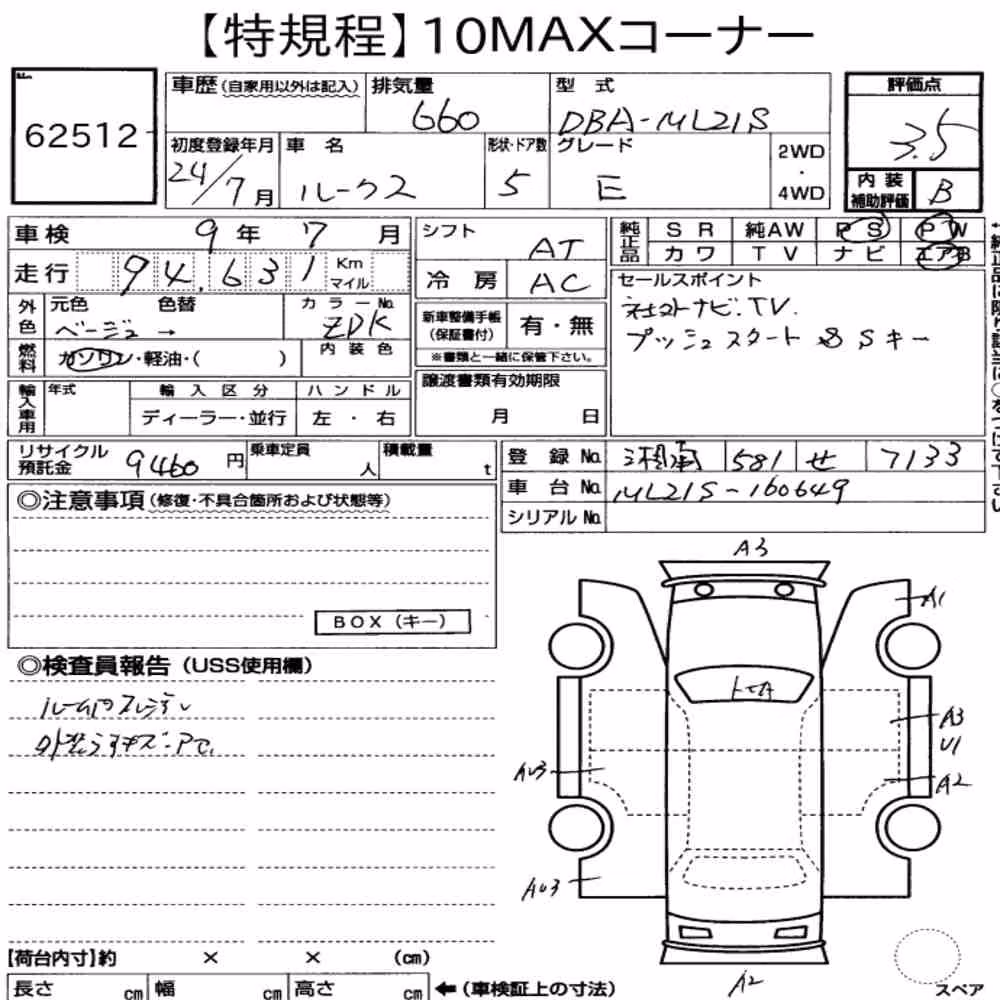 【特規程】10MAXコーナー
62512
車歴(自家用以外は記入)
排気量
660
型式
DBA-ML21S
評価点
3.5
初度登録年月
24/7月
車名
ルークス
形状・ドア数
5
グレード
E
2WD
・
4WD
内装
補助評価
B
車検 9年 7月
走行 94,631 Km
マイル
シフト
AT
冷房 AC
純正品
SR 純AW PS PW
カワ TV ナビ エアB
外色
元色 色替
ベージュ →
カラーNo.
ZDK
燃料
ガソリン・軽油・( )
内装色
新車整備手帳
(保証書付)
有・無
※書類と一緒に保管下さい。
セールスポイント
社外ナビ.TV.
プッシュスタート&Sキー
輸入車用
年式
輸入区分
ディーラー・並行
ハンドル
左・右
譲渡書類有効期限
月 日
リサイクル
預託金
9460円
乗車定員
人
積載量
t
登録No. 湘南 581 せ 7133
車台No. ML21S-160649
シリアルNo.
◎注意事項(修復・不具合箇所および状態等)
BOX(キー)
◎検査員報告(USS使用欄)
A3
A1
A3
U1
AU3
A2
AU3
A2
【荷台内寸】約 × × (cm)
長さ cm 幅 cm 高さ cm ←(車検証上の寸法)
スペア